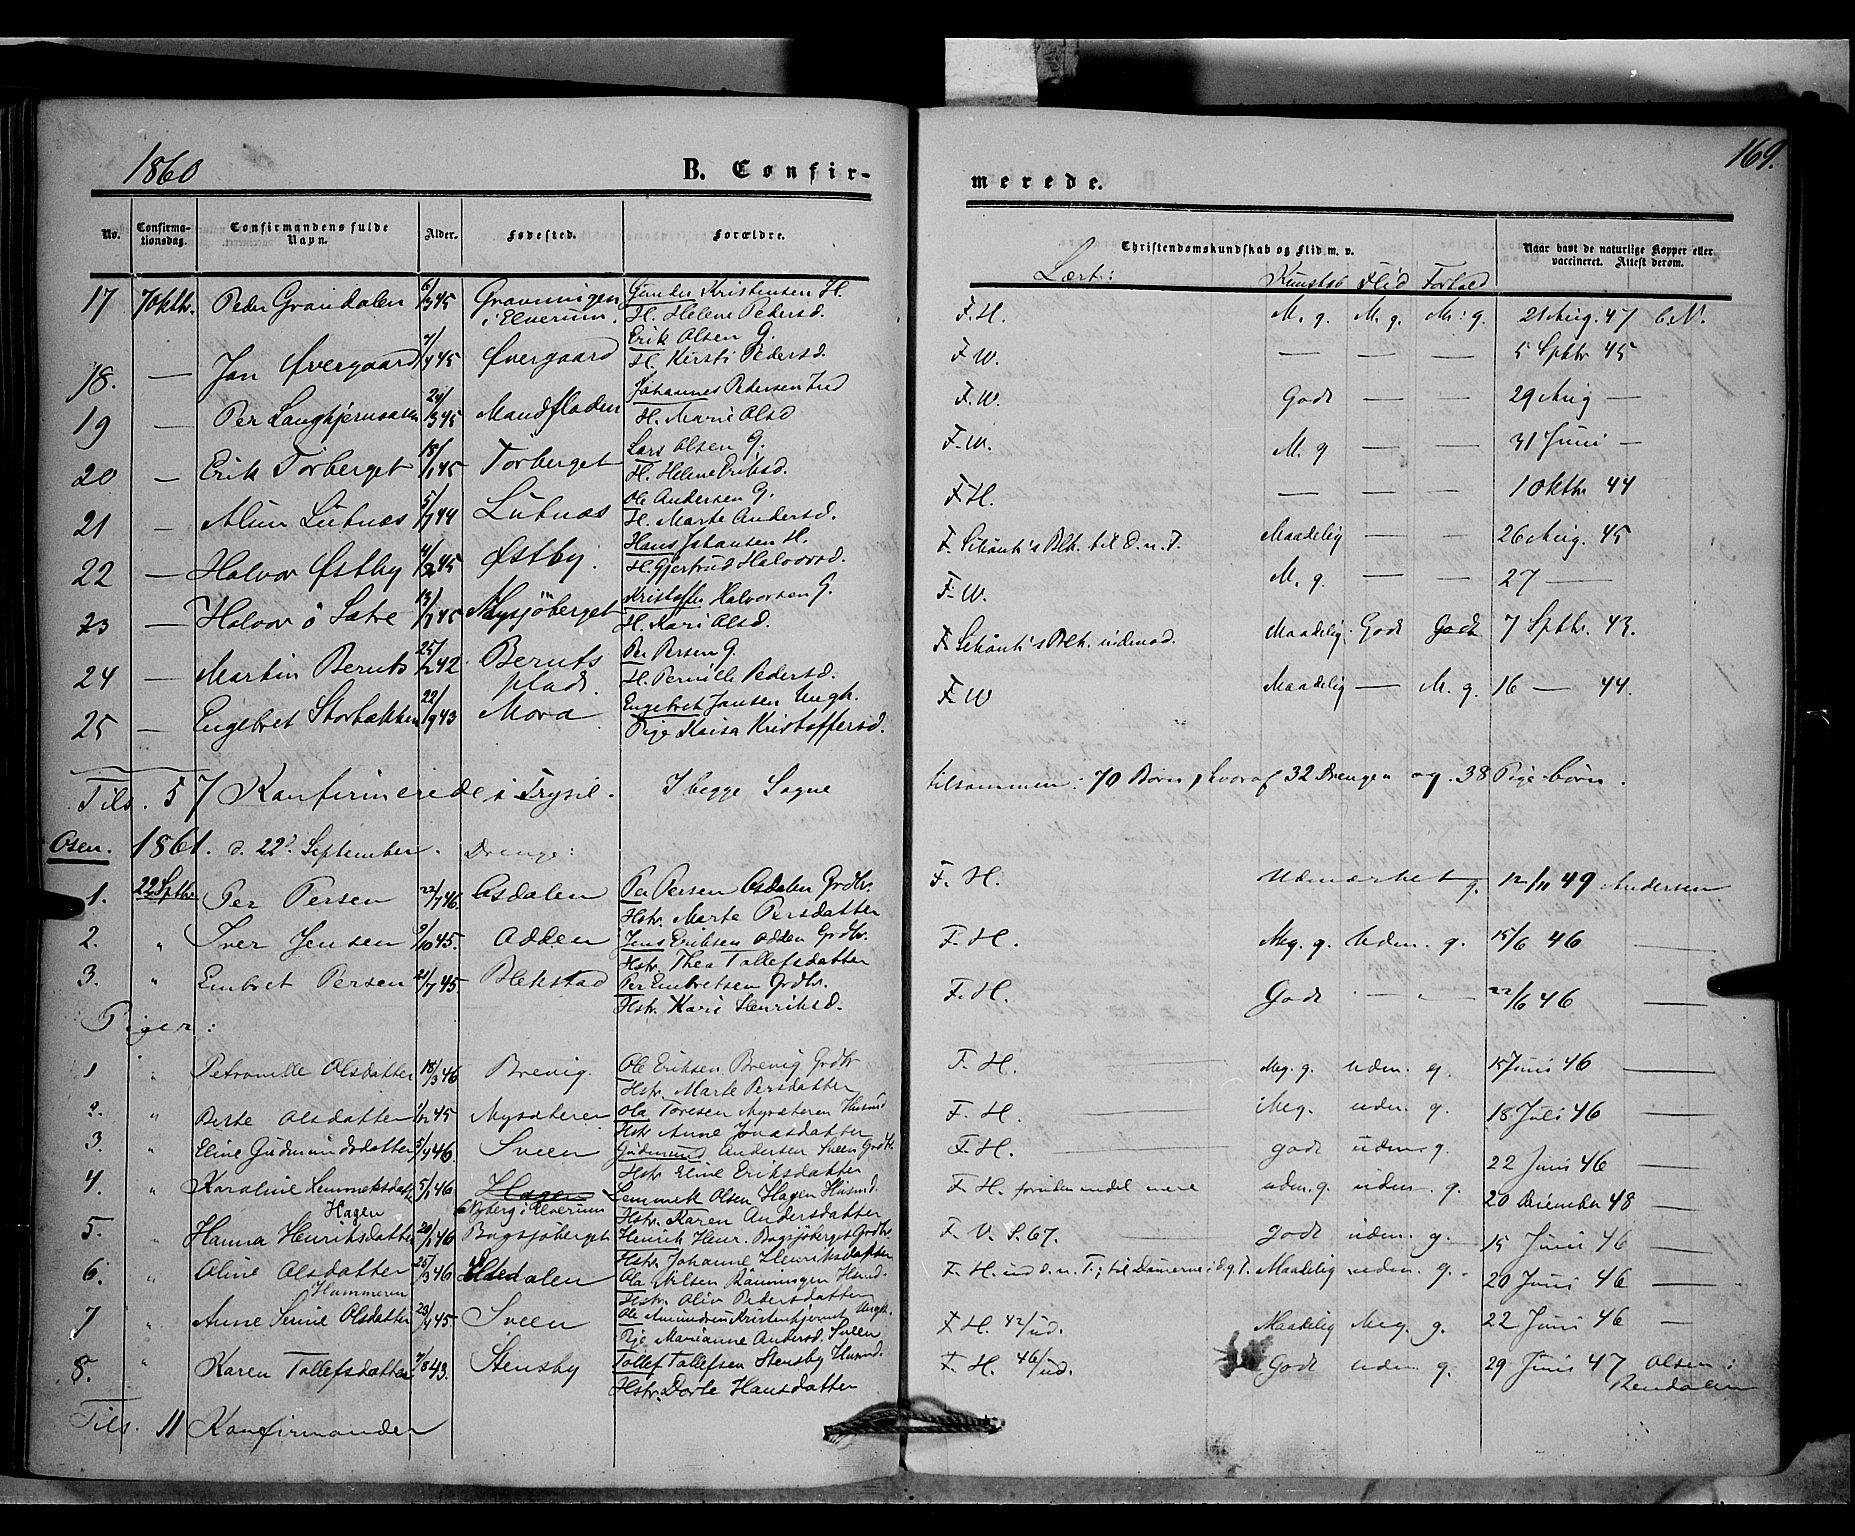 1860 B. Confir-
merede. 169.
No. Confirma-tionsdag. Confirmandens fulde Navn. Alder. Fødested. Forældre.
Christendomskundskab og Flid m. v. Naar havt de naturlige Kopper eller vaccineret. Attest derom.
Lært: Kundskab Flid Forhold
17 7 Okthr. Peder Grandalen 6/3 45 Gravningen i Elverum. Gunder Kristensen H. H. Helene Pedersd. F. H. M. g. M. g. M. g. 21 Aug. 47 C. N.
18. — Jon Øvergaard /4 45 Øvergaard Erik Olsen G. H. Kirsti Pedersd. F. W. — — — 5 Spthr 45
19 — Per /3 45 Mandfloden Johannes Pedersen Ind H. Marie Olsd F. W. Godt — — 29 Aug —
20 — Erik Torberget 18/1 45 Torberget Lars Olsen G. H. Helene Eriksd. F. W. M. g — — 31 Juni —
21 — Alun Lutnæs 5/7 44 Lutnæs Ole Andersen G. H. Marte Andersd. F. H. — — — 1 Okthr 44
22 — Halvor Østby 4/2 45 Østby. Hans Johansen H. H. Gjertrud Halvorsd. F. til d. n. T. Maadelig — — 26 Aug. 45
23 — Halvor ö Sætre 13/7 45 Mysjöberget Kristoffer Halvorsen G. H. Kari Olsd. F. W. M. g. — — 27 —
24 — Martin Beruts 25/12 42 Beruts plads. Per Persen G. H. Pernille Pedersd. F. Maadelig Godt Godt 7 Spthr. 43.
25 — Engebret Storbækken 22/9 43 Mora Engebret Jansen Ungk. Pige Kaisa Kristoffersd. F. W Maadelig — M. g. 16 — 44.
Tils. 57 Konfirmerede i Trysil. I begge Sogne tilsammen: 70 Børn, hvoraf 32 Drenge og 38 Pigebörn.
Osen. 1861. d. 22d September. Drenge:
1. 22 Spthr Per Persen 22/7 46. Osdalen Per Persen Osdalen Grdbr. Hstr. Marte Persdatter F. H. Udmærket g. 12/11 49 Andersen
2. " Iver Jensen 9/10 45. Odden Jens Eriksen Odden Grdbr. Hstr. Thea Tollefsdatter F. H. Meg. g. Udm. g. 15/6 46 —
3. " Embret Persen 21/7 45. Blekstad Per Embretsen Grdbr. Hstr. Kari Henriksd. F. H. Godt — " — 22/6 46 —
Piger:
1 " Petronelle Olsdatter 18/3 46 Brevig. Ole Eriksen Brevig Grdbr Hstr. Marte Persdatter F. H. Meg. g. udm. g. 15 Juni 46 —
2. " Berte Olsdatter 1/12 45 Mysæteren Ola Toresen Mysæteren Husmd Hstr. Anne Jonasdatter F. H. Meg. udm. g. 18 Juli 46 —
3. " Eline Gudmundsdatter 5/4 46. Sveen Gudmund Andersen Sveen Grdbr. Hstr. Eline Eriksdatter F. H. godt udm. g. 22 Juni 46 —
4. " Karoline Lemmeksdatter Hagen 5/1 46 Hagen Nyberg i Elverum Lemmek Olsen Hagen Husmd. Hstr. Karen Andersdatter F. H. foruden endel mere udm. g. udm. g. 20 December 48 —
5. " Hanna Henriksdatter 20/1 46 Bogsjøberget Henrik Henr. Bogsjøberget Grdbr. Hstr. Johanne Henriksdatter F. V. S. 67. godt udm. g. 15 Juni 46 —
6. " Oline Olsdatter Hammeren 25/3 46 Elsedalen Ola Nilsen Rønningen Husmd. Hstr. Oliv Pedersdatter F. H. ud d. n. T.; til Dommerne i d. g. T. Maadelig udm. g. 20 Juni 46 —
7 " Anne Serine Olsdatter 23/4 45 Sveen Ole Amundsen Ungk. Pige Marianne Andersd. Sveen F. H. 42/ud. Maadelig Meg. g. 22 Juni 46 —
8. " Karen Tollefsdatter 7/8 43. Stensby Tollef Tollefsen Stensby Husmd. Hstr. Dorte Hansdatter F. H. 46/ud. Godt udm. g. 29 Juni 47 Olsen i Rendalen
Tils. 11 Konfirmander